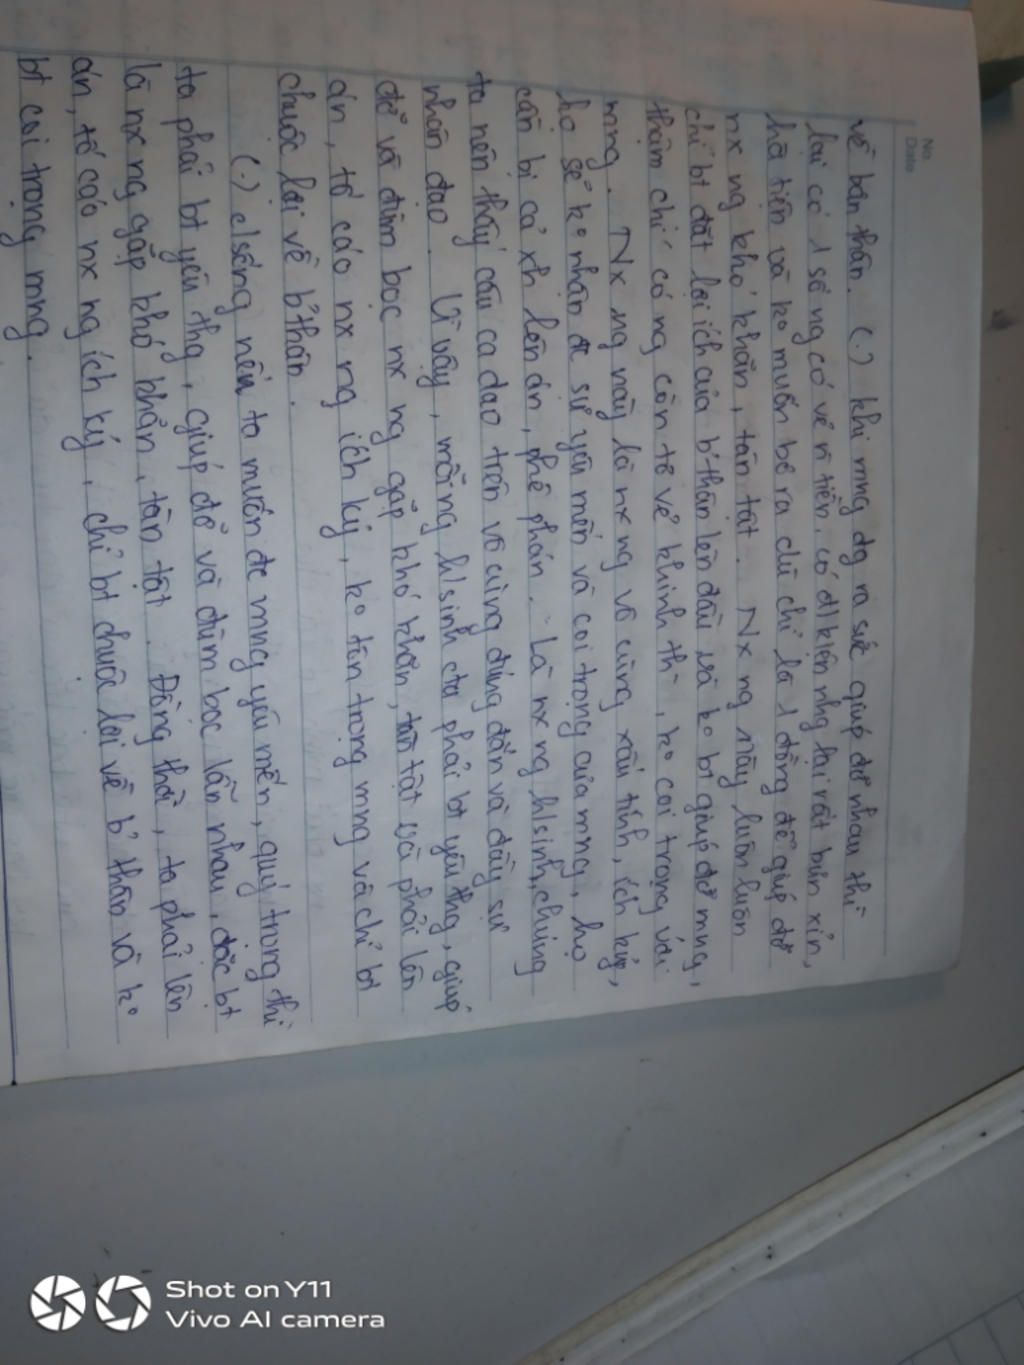 No.
Date
về bản thân. (.) khi mng dg ra sức giúp đỡ nhau thì
lại có 1 số ng có về n̄ tiền, có đ/kiện nhg lại rất bủn xỉn,
hà tiện và ko muốn bỏ ra dù chỉ là 1 đồng để giúp đỡ
nx ng khó khăn, tàn tật. Nx ng này luôn luôn
chỉ bt đặt lợi ích của b'thân lên đầu mà ko bt giúp đỡ mng,
thậm chí có ng còn tỏ vẻ khinh thì, ko coi trọng với
mng. Nx ng này là nx ng vô cùng xấu tính, ích kỷ,
họ sẽ ko nhận đc sự yêu mến và coi trọng của mng, họ
cần bị cả xh lên án, phê phán. Là nx ng h/sinh, chúng
ta nên thấy câu ca dao trên vô cùng đúng đắn và đầy sự
nhân đạo. Vì vậy, mỗi ng h/sinh cta phải bt yêu thg, giúp
đỡ và đùm bọc nx ng gặp khó khăn, tàn tật và phải lên
án, tố cáo nx ng ích kỷ, ko tôn trọng mng và chỉ bt
chuộc lợi về b'thân.
(.) c/sống nếu ta muốn đc mng yêu mến, quý trọng thì
ta phải bt yêu thg, giúp đỡ và đùm bọc lẫn nhau, đặc bt
là nx ng gặp khó khăn, tàn tật. Đồng thời, ta phải lên
án, tố cáo nx ng ích kỷ, chỉ bt chuộc lợi về b'thân và ko
bt coi trọng mng.
Shot on Y11
Vivo AI camera